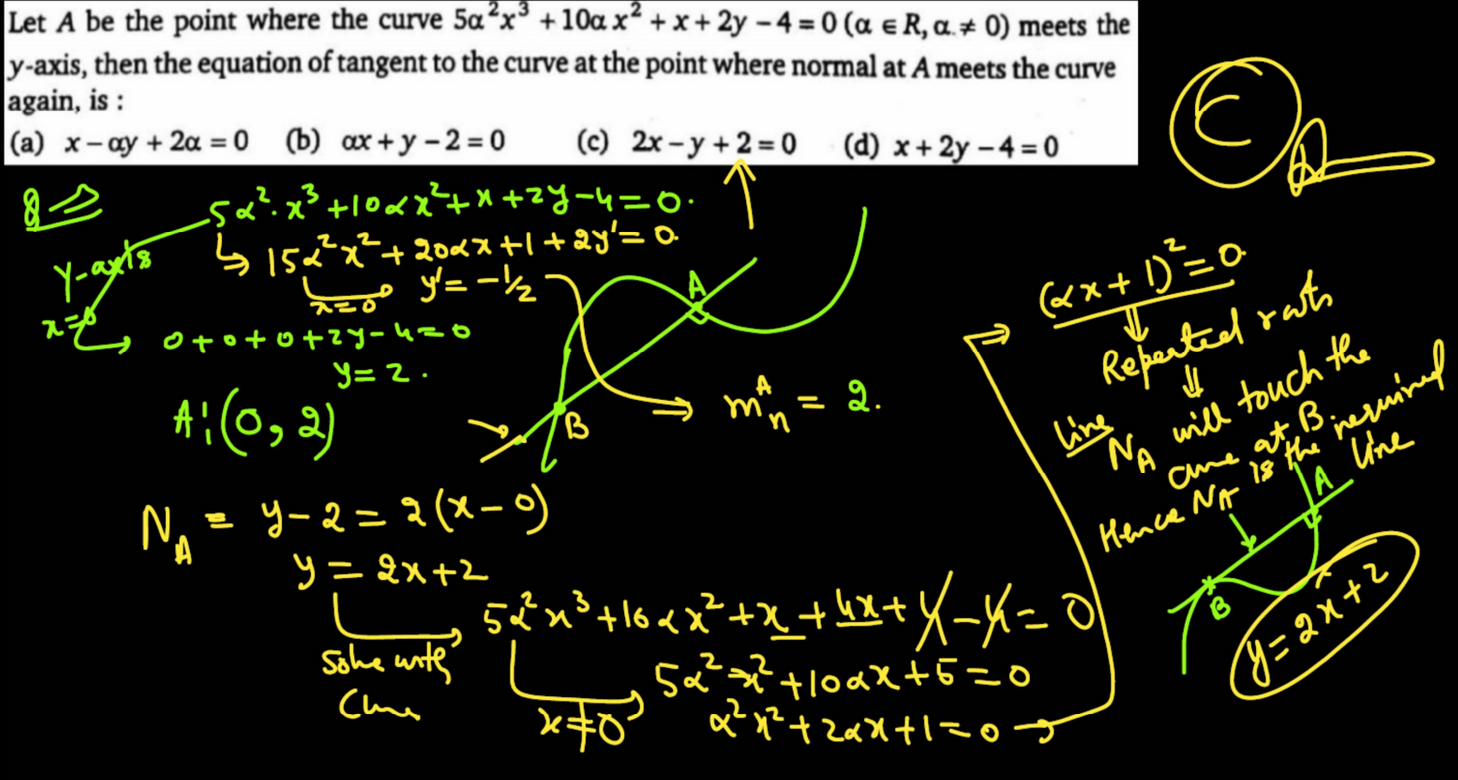 Let A be the point where the curve 5α²x³ + 10αx² + x + 2y – 4 = 0 (α ∈ R, α ≠ 0) meets the
y-axis, then the equation of tangent to the curve at the point where normal at A meets the curve
again, is :
(a) x – αy + 2α = 0 (b) αx + y – 2 = 0 (c) 2x – y + 2 = 0 (d) x + 2y – 4 = 0
C
5α²·x³ + 10αx² + x + 2y – 4 = 0.
15α²x² + 20αx + 1 + 2y' = 0
x=0 y' = –1/2
Y-axis
x=0
0 + 0 + 0 + 2y – 4 = 0
y = 2.
A: (0, 2)
A
B
m_n^A = 2.
N_A = y – 2 = 2(x – 0)
y = 2x + 2
Solve with
Curve
5α²x³ + 10αx² + x + 4x + 4 – 4 = 0
x ≠ 0
5α²x² + 10αx + 5 = 0
α²x² + 2αx + 1 = 0
(αx + 1)² = 0
Repeated roots
Line N_A will touch the
curve at B.
Hence N_A is the required
line
A
B
y = 2x + 2